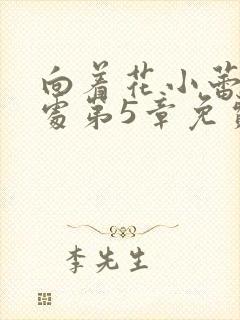 向着花小蕾
处第5章免费
李先生